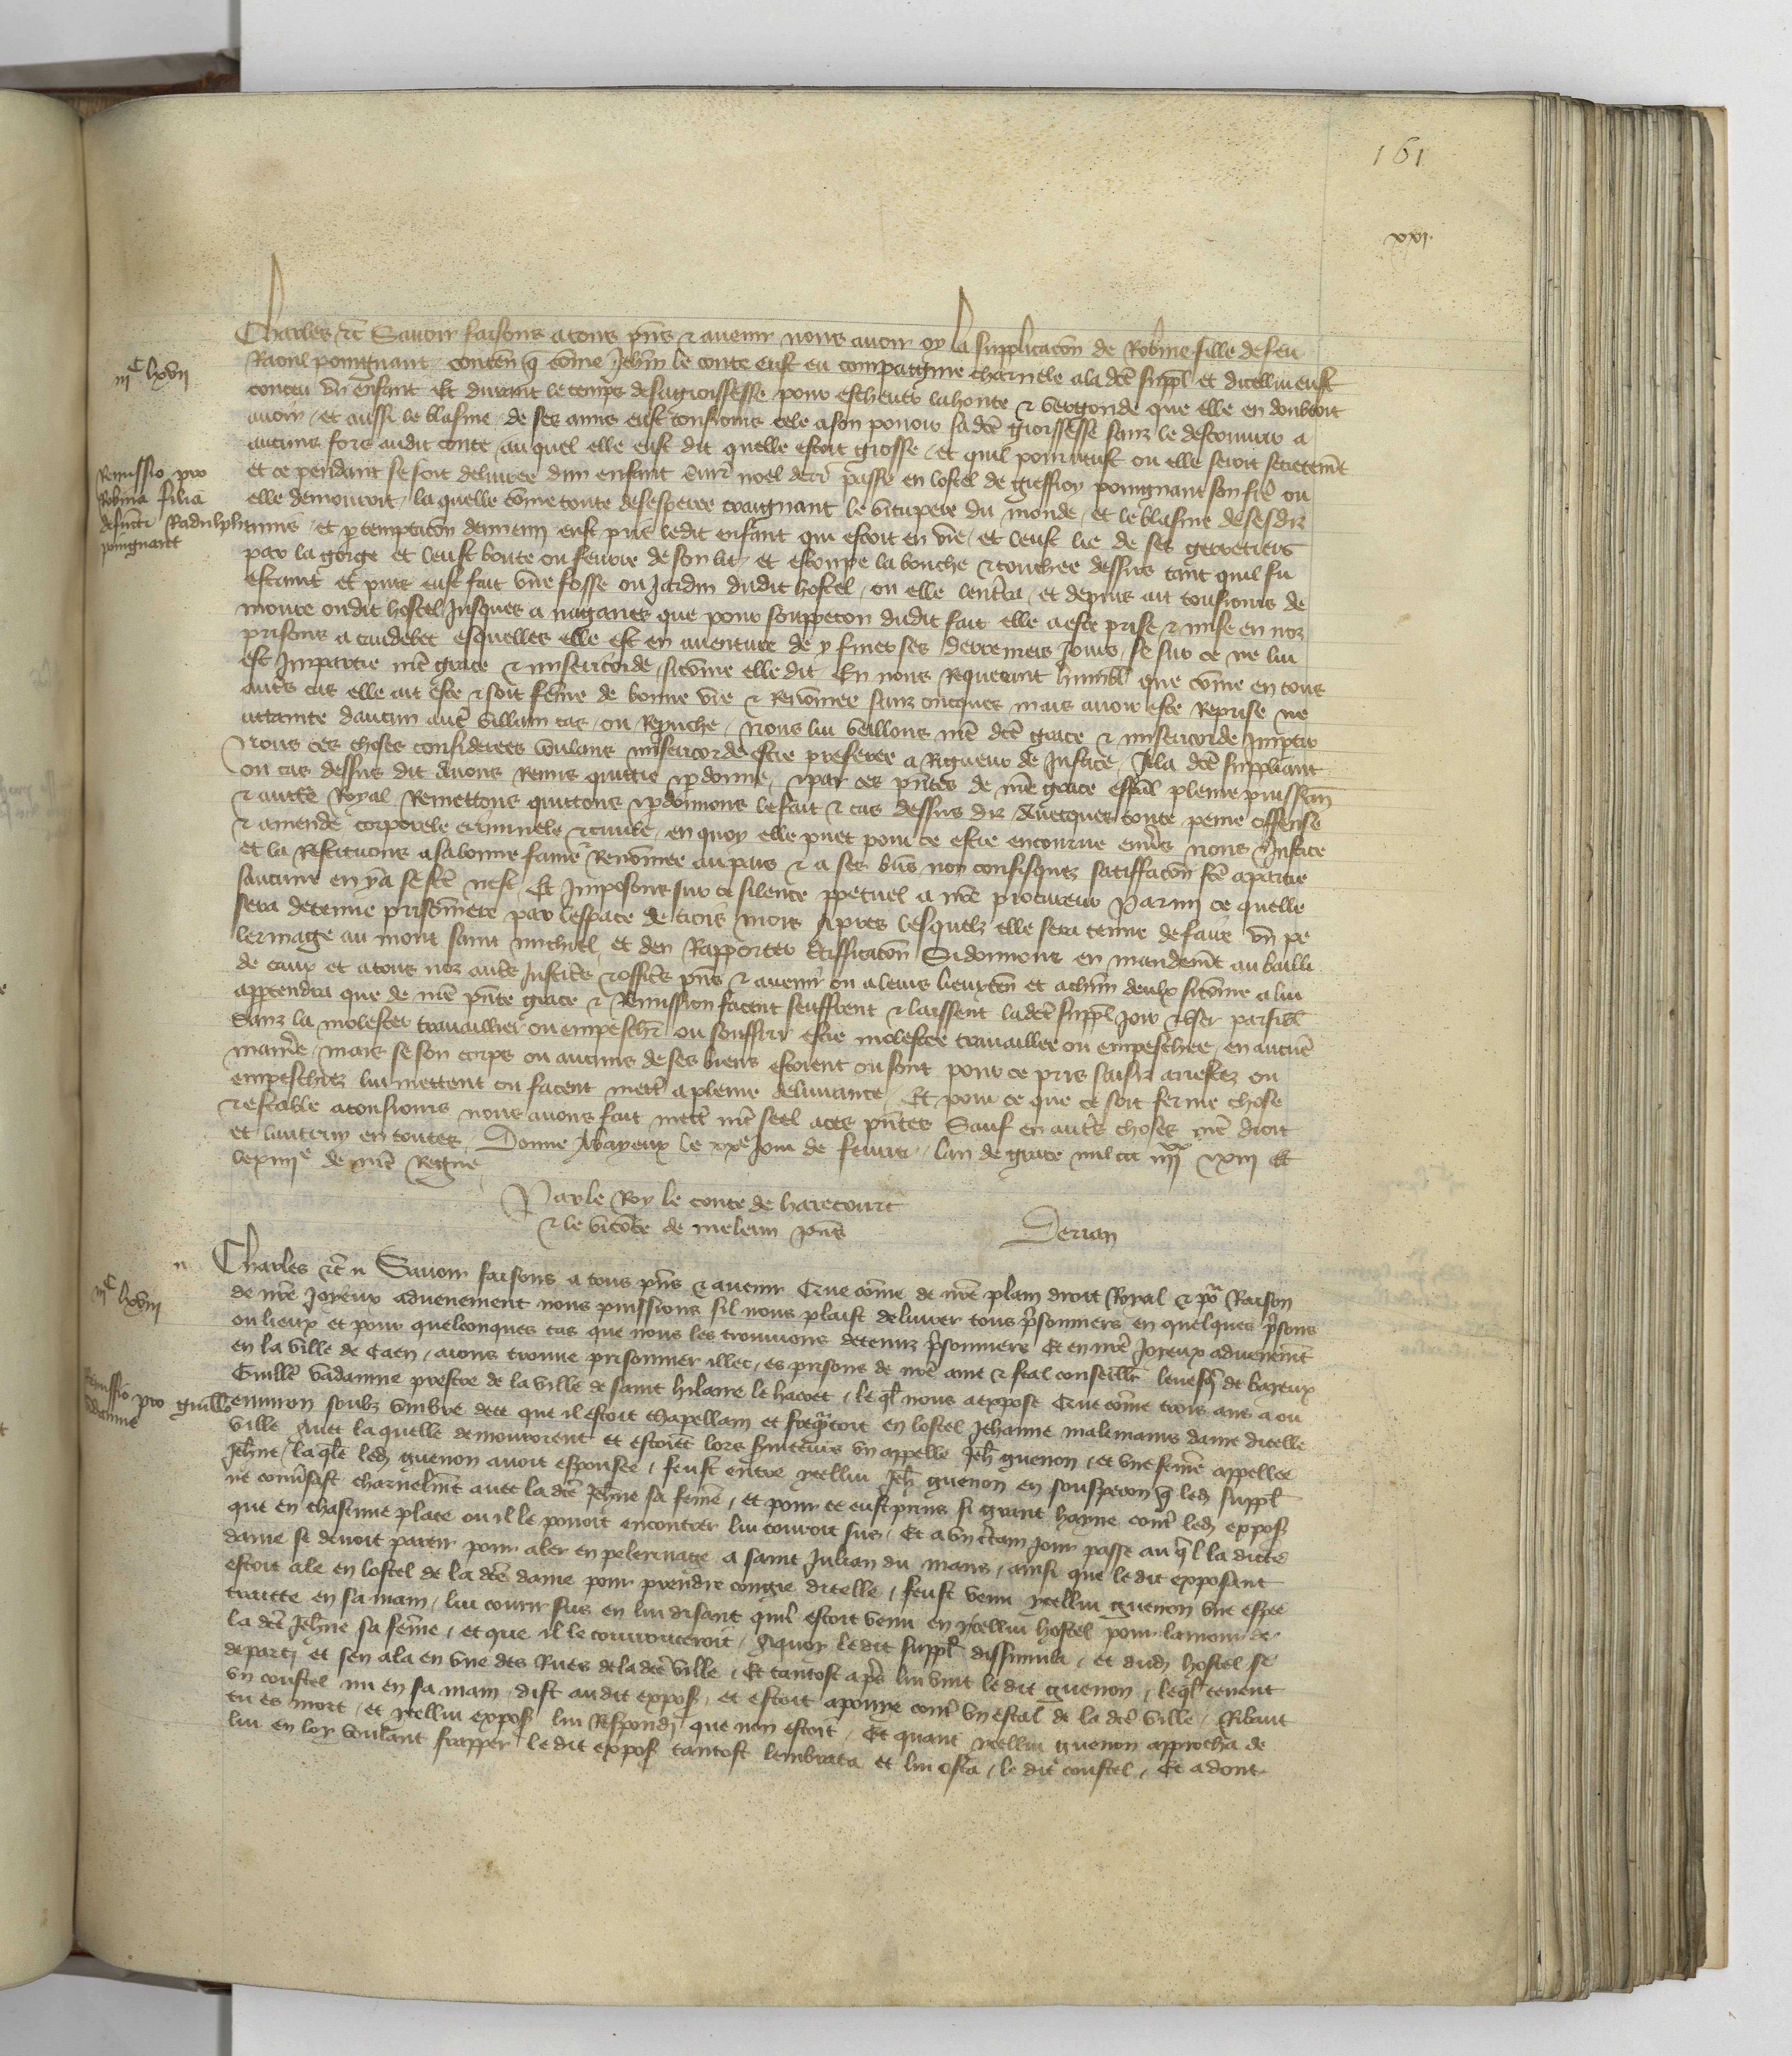 161
xvi.
Charles etc Savoir faisons a tous pñs & avenir nous avoir oy la supplicacõn de Robine fille de feu
iijC lxvii
Raoul poingnant contenãt q̃ cõme Jehan le conte eust eu compaignie charnele a la dc̃e suppl̃ et dicellui eust
conceu un enfant Et durant le temps de sa groissesse pour escheuer la honte & vergonde que elle en doubtoit
avoir / et aussi le blasme de ses amis eust tousiours cele a son povoir sa dc̃e groissesse sanz le descouvrir a
aucuns fors audit conte / au quel elle eust dit quelle estoit grosse / et quil pourveust ou elle seroit secretemẽt
Remissio pro
Robina filia
defuncti Radulphi
poingnant
et ce pendant se soit delivree dun enfant envir̃ noel derr̃ passe en lostel de Gieffroy poingnant son frẽ ou
elle demouroit / la quelle cõme toute desesperee craignant le vitupere du monde / et le blasme de ses diz
amis / et p temptacõn dennemi eust pris ledit enfant qui estoit en vie / et leust lie de ses gerretiers
par la gorge et leust boute ou feurre de son lit / et estoupe la bouche & couchee dessus tant quil fu
estaint et puis eust fait une fosse ou jardin dudit hostel / ou elle lenterra / et depuis ait tousiours de
moure oudit hostel jusques a nagaires que pour souppecon dudit fait elle a este prise & mise en noz
prisons a caudebec esquelles elle est en aventure de y finer ses derreniers jours / se sur ce ne lui
est impartie nr̃e grace & misericorde / si cõme elle dit / En nous requerant humbl̃ que cõme en tous
autr̃s cas elle ait este & soit fẽme de bonne vie & renõmee sanz oncques mais avoir este reprise ne
attainte daucun autr̃ villain cas / ou reprouche / Nous lui veillons nr̃e dc̃e grace & misericorde impartir
Nous ces choses considerees voulans misericorde estre preferee a rigueur de justice / A la dc̃e suppliant
ou cas dessus dit Avons remis quittie & pdonne / & par ces pñtes de nr̃e grace esp̃al pleine puissanc̃
& auctẽ Royal Remettons quittons & pdonnons le fait & cas dessus diz Avecques toute peine offense
& amende corporele criminele & civile / en quoy elle puet pour ce estre encourue envers nous & justice
et la restituons a sa bonne fame & renõmee au pais & a ses biẽs non confisquez satisffacõn fc̃e a partie
saucune en y a se fc̃e nest / Et imposons sur ce silence ppetuel a nr̃e procureur Parmi ce quelle
sera detenue prisonniere par lespace de trois mois Apres lesquelz elle sera tenue de faire un pe
lerinage au mont saint michiel et den rapporter certifficacõn Si donnons en mandemẽt au bailli
de caux et a tous noz autr̃s justiciẽs & officiẽs pñs & avenir ou a leurs lieuxteñ et a chũn deulx si cõme a lui
appartendra que de nr̃e pñte grace & remission facent seuffrent & laissent la dc̃e suppl̃ joir & user paisibl̃
Sanz la molester travaillier ou empeschr̃ ou souffrir estre molestee travaillee ou empeschee / en aucũe
maniẽre / mais se son corps ou aucuns de ses biens estoient ou sont pour ce pris saisiz arrestez ou
empeschiez lui mettent ou facent mett̃ a pleine delivrance / Et pour ce que ce soit ferme chose
& estable a tousiours nous avons fait mett̃ nr̃e seel a ces pñtes Sauf en autr̃s choses nr̃e droit
et lautruy en toutes / Donne A bayeux le xxe jour de fevrier / lan de grace mil ccc iiijxx & xiij Et
le xiiije de nr̃e regne
Par le Roy le conte de harecourt
& le viconte de meleun pñs
Derian
iijC lxviij
Charles etc Savoir faisons a tous pñs & avenir Que cõme de nr̃e plain droit Royal & pour Raison
de nr̃e joyeux advenement nous puissions sil nous plaist delivrer tous pr̃sonniers en quelques pr̃sons
ou lieux et pour quelconques cas que nous les trouvions detenuz pr̃sonniers Et en nr̃e joyeux advenemẽt
en la ville de Caen / aions trouve prisonnier illec / es prisons de nr̃e ame & feal conseillr̃ levesq̃ de bayeux
Remissio pro Guillo
vadanne
Guillẽ vadanne prestre de la ville de saint hilaire le harcoet / le ql̃ nous a expose Que cõme trois ans a ou
environ soubz umbre dece que il estoit chapellain et frequẽtoit en lostel Jehanne malemains dame dicelle
ville / Avec la quelle demouroient et estoient lors serviteurs un appelle Jeh̃ guenon / et une femẽ appellee
Jeh̃ne / la qlẽ led guenon avoit espousee / feust entre ycellui Jeh̃ guenon en souspecon q̃ led suppl̃
ne convr̃sast charnelmẽt avec la dc̃e Jeh̃ne sa femẽ / et pour ce eust prins si grant hayne contr̃ led expos̃
que en chascune place ou il le povoit encontrer lui couroit sus / Et a un certain jour passe au q̃l la dicte
dame se devoit partir pour aler en pelerinage a saint Julian du mans / ainsi que le dit exposant
estoit ale en lostel de la dc̃e dame pour prendre congie dicelle / feust venu ycellui guenon une espee
traitte en sa main / lui courir sus en lui disant quil estoit venu en ycellui hostel pour lamour de
la dc̃e Jeh̃ne sa fẽme / et que il le courrouceroit / Aquoy le dit suppl̃ dissimula / et dud hostel se
departi et sen ala en une des Rues de la dc̃e ville / Et tantost apr̃s lui vint le dit guenon / le ql̃ tenent
un coustel nu en sa main dist audit expos̃ / et estoit apouye contr̃ un estal de la dc̃e ville / Ribaut
tu es mort / et ycellui expos̃ lui respondi que non estoit / Et quant ycellui guenon approcha de
lui en loy voulant frapper le dit expos̃ tantost lembraca et lui osta / le dit coustel / Et adont